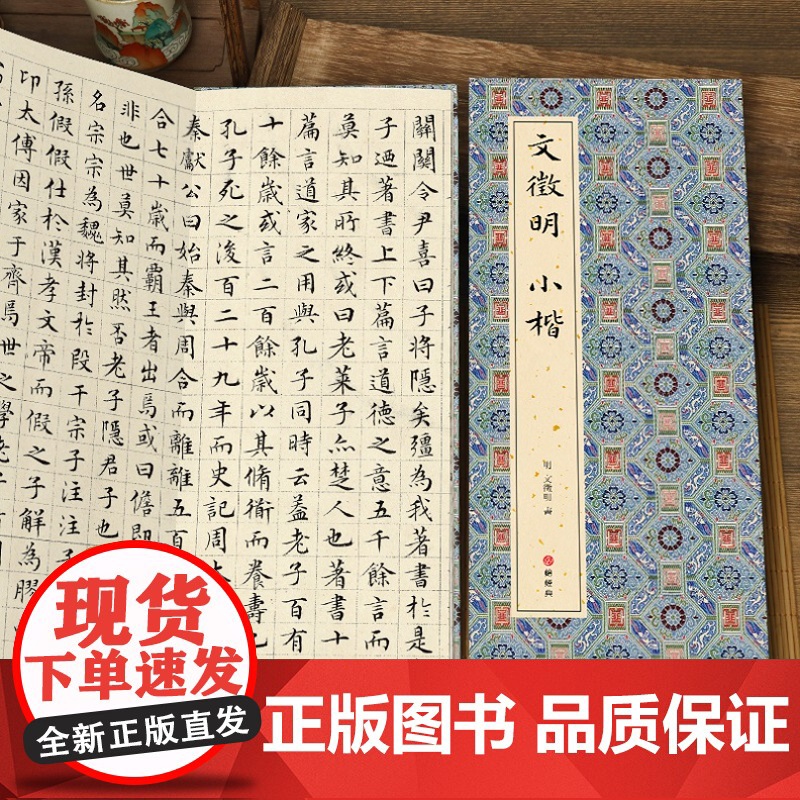 關關令尹喜曰子將隱矣彊為我著書於是
子迺著書上下篇言道德之意五千餘言而
莫知其所終或曰老萊子亦楚人也著書十
篇言道家之用與孔子同時云葢老子百有
十餘歲或言二百餘歲以其脩衜而養壽
孔子死之後百二十九年而史記周
秦獻公曰始秦與周合而離離五百
合七十歲而霸王者出焉或曰儋即
非也世莫知其然否老子隱君子也
名宗宗為魏將封於段干宗子注注子
孫假假仕於漢孝文帝而假之子解為膠
印太傅因家于齊焉世之學老
文徵明 小楷
明 文徵明 書
现货
下单速发
全新正版直发
正版图书 品质保证